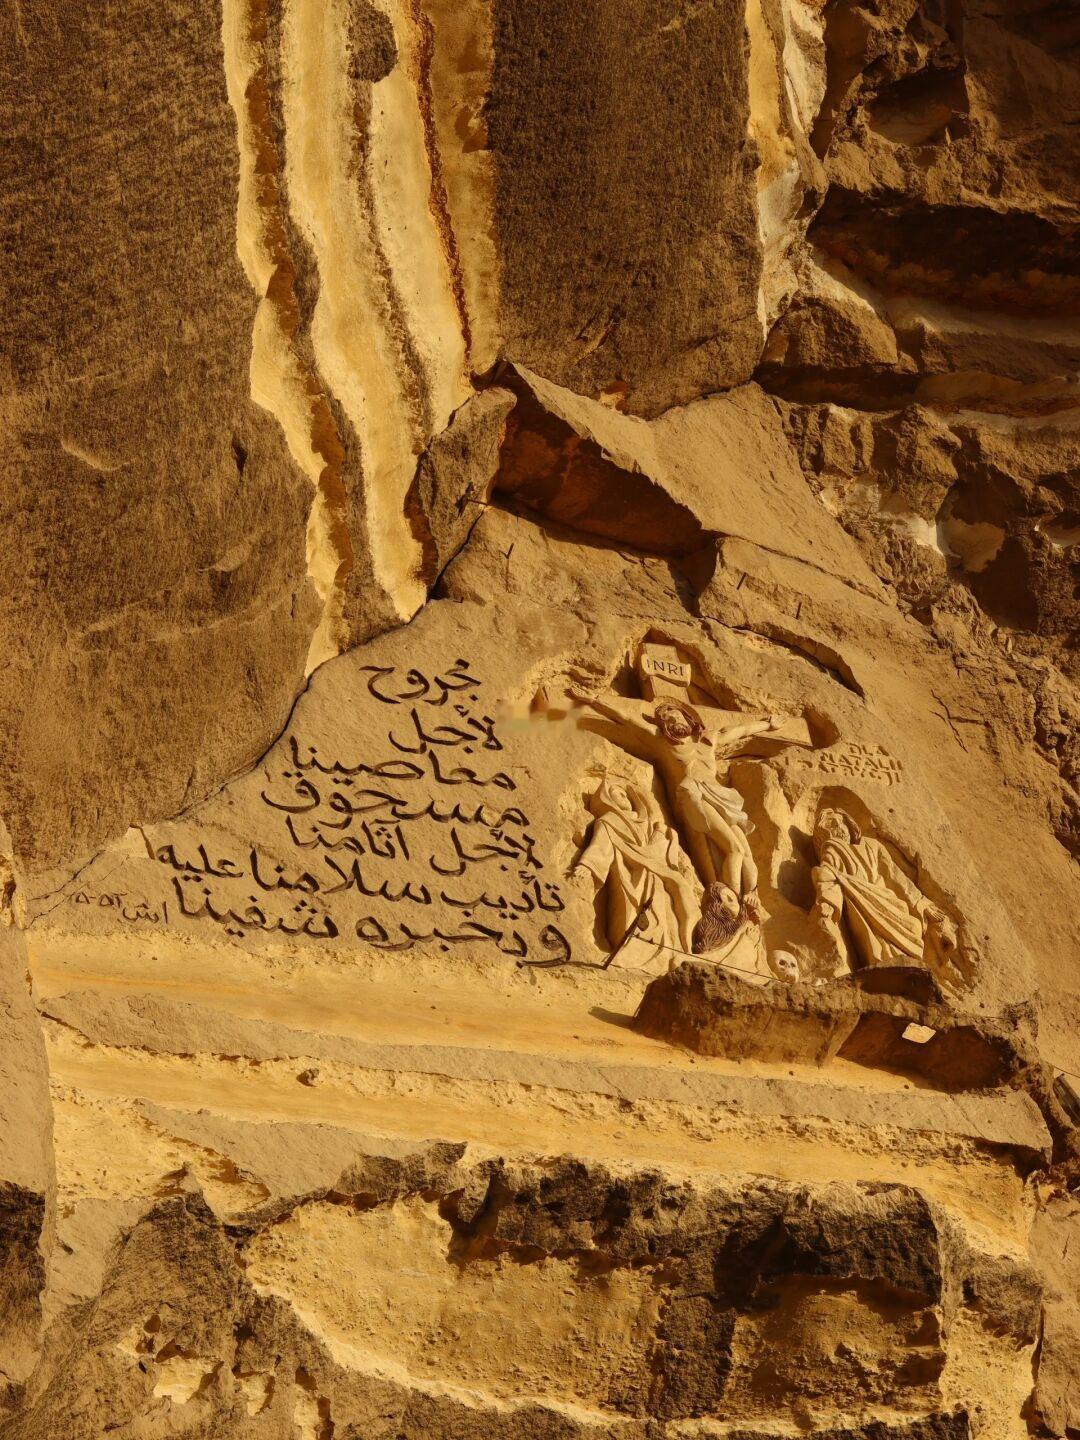 مجروح
لأجل
معاصينا
مسحوق
لأجل آثامنا
تأديب سلامنا عليه
وبحبره شفينا
اش ٥٣-٥
INRI
DLA
NATALII